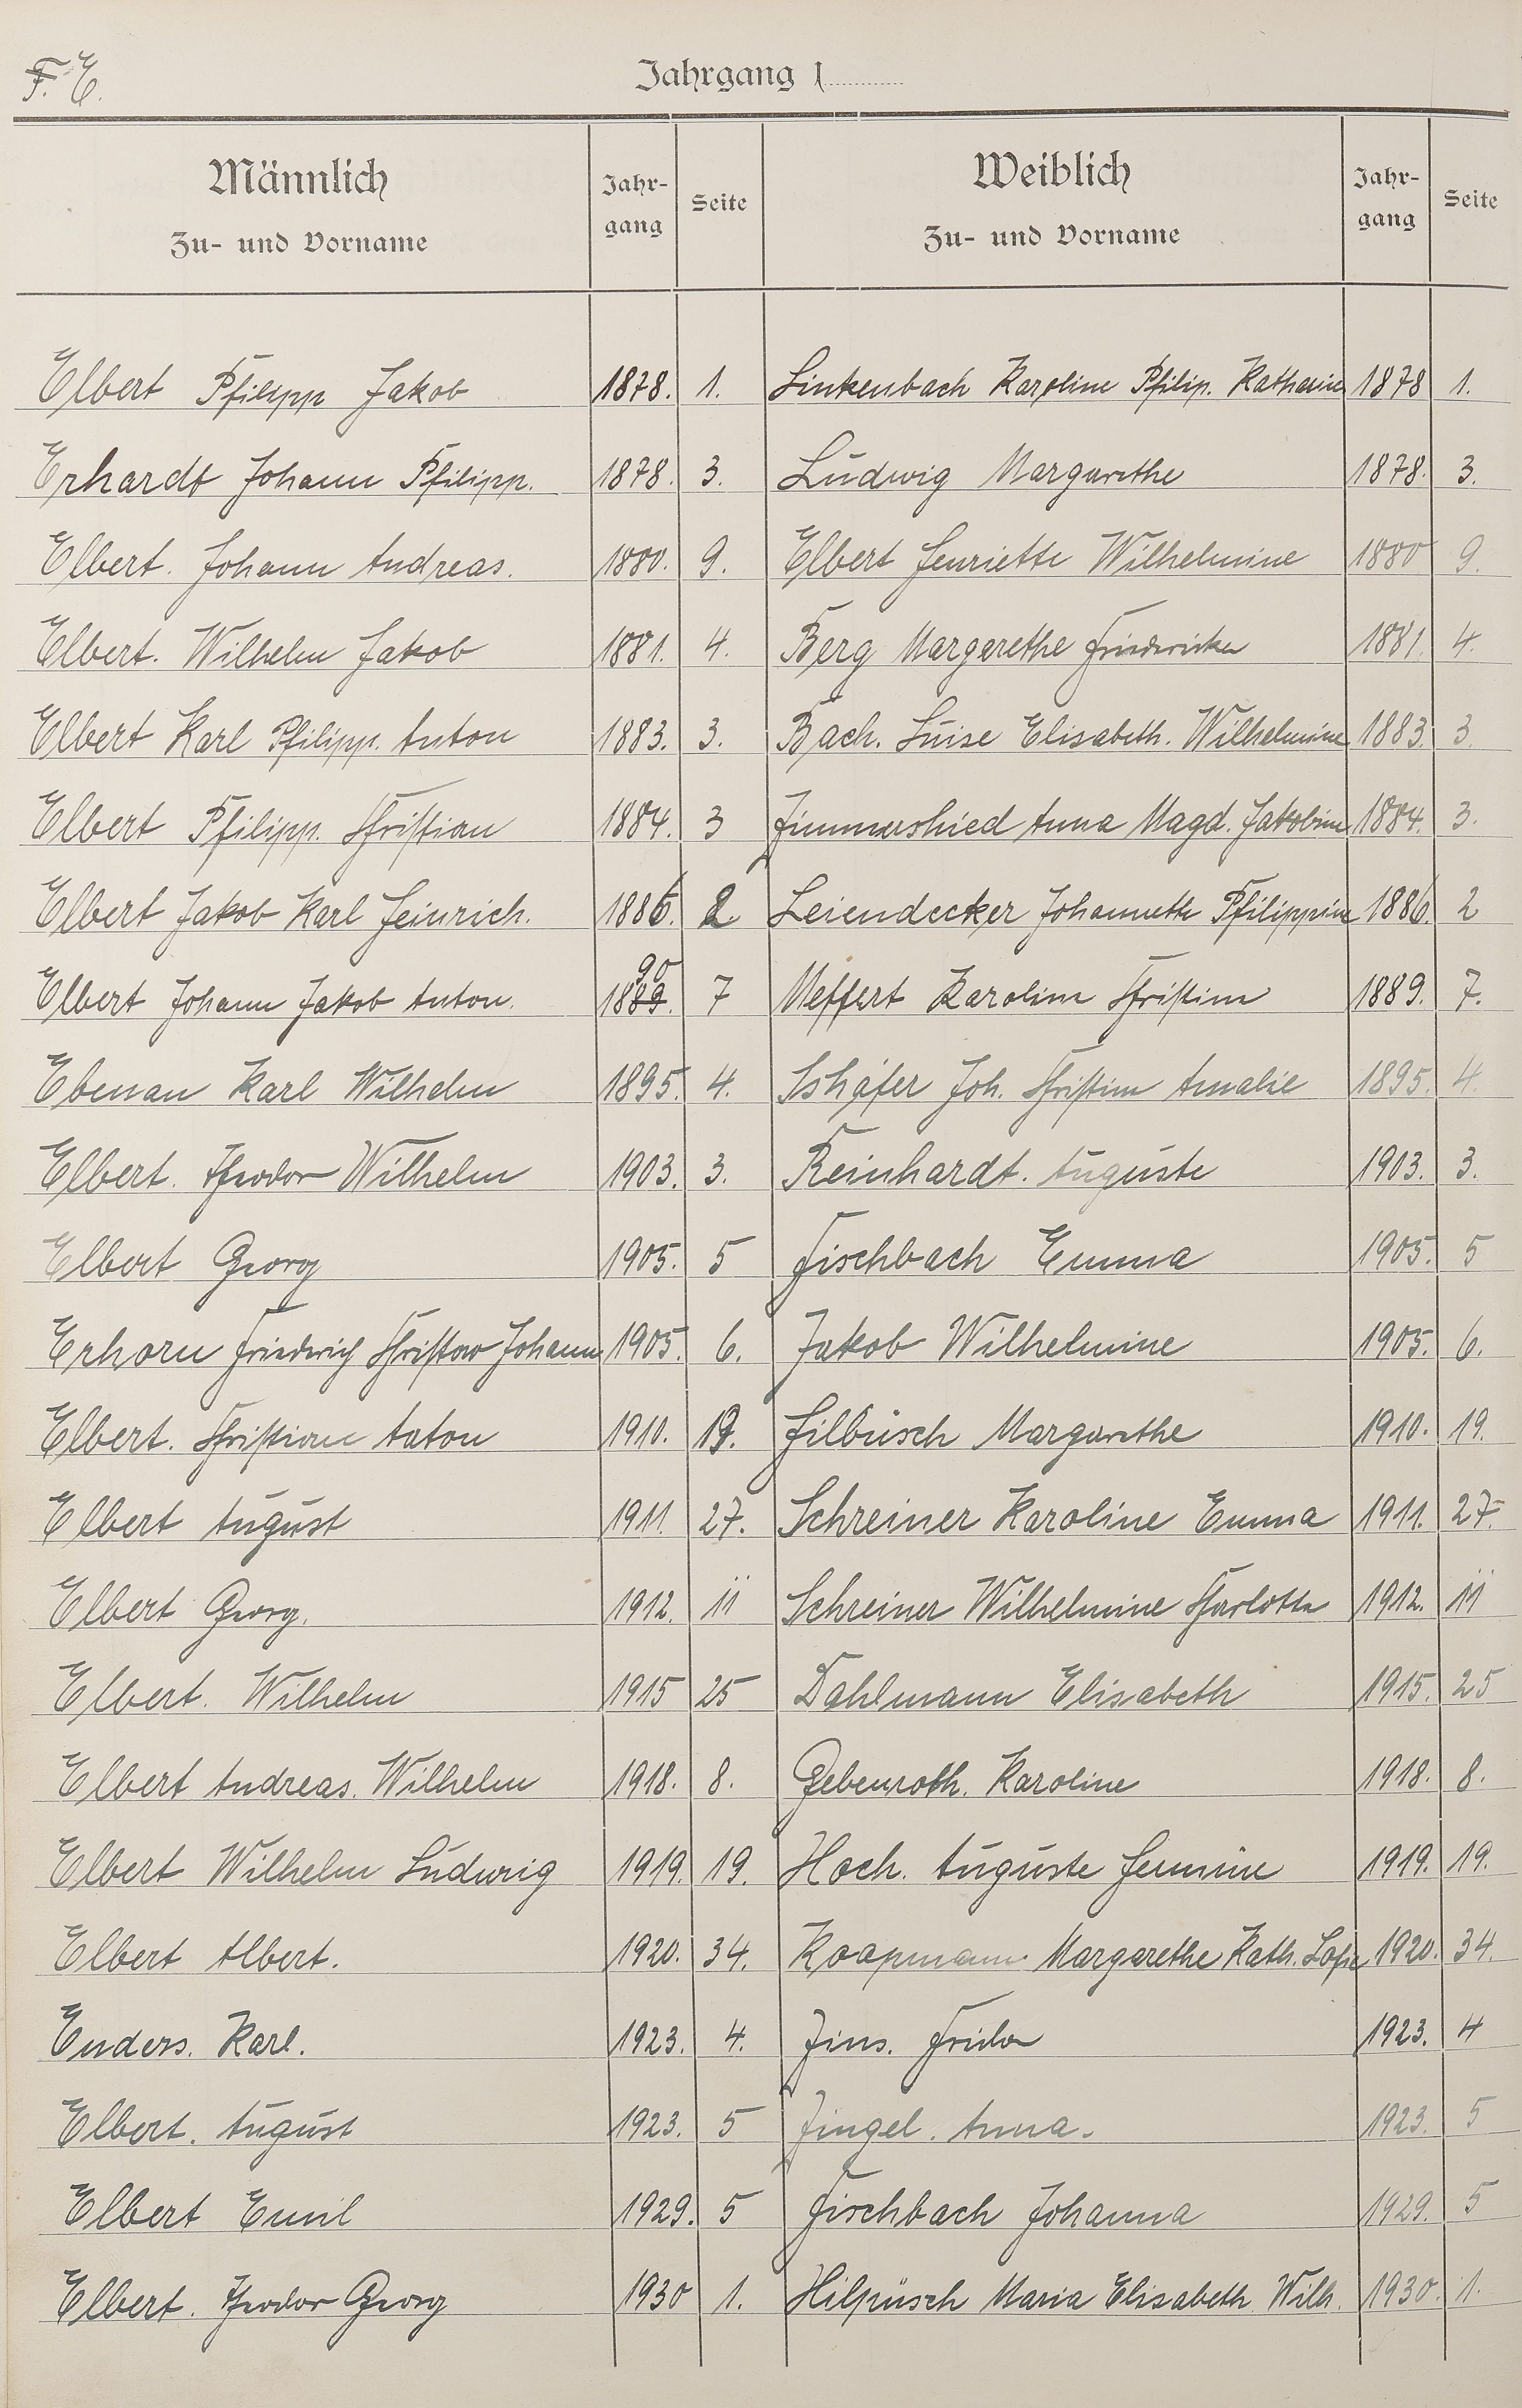 F. E.
Jahrgang 1
Männlich Zu- und Vorname Jahr-gang Seite Weiblich Zu- und Vorname Jahr-gang Seite
Elbert Philipp Jakob 1878. 1. Linkenbach Karoline Philip. Katharine 1878 1.
Erhardt Johann Philipp. 1878. 3. Ludwig Margarethe 1878. 3.
Elbert. Johann Andreas. 1880. 9. Elbert Henriette Wilhelmine 1880 9.
Elbert. Wilhelm Jakob 1881. 4. Berg Margarethe Friedericka 1881. 4.
Elbert Karl Philipp. Anton 1883. 3. Bach. Luise Elisabeth. Wilhelmine 1883. 3.
Elbert Philipp. Christian 1884. 3 Zimmerschied Anna Magd. Jakobine 1884. 3.
Elbert Jakob Karl Heinrich. 1886. 2. Leiendecker Johannette Philippine 1886. 2
Elbert Johann Jakob Anton. 1889. 90 7 Meffert Karoline Christine 1889. 7.
Ebenau Karl Wilhelm 1895. 4. Schäfer Joh. Christine Amalie 1895. 4.
Elbert. Theodor Wilhelm 1903. 3. Reinhardt. Auguste 1903. 3.
Elbert Georg 1905. 5 Fischbach Emma 1905. 5
Erhorn Friedrich Christow Johann 1905. 6. Jakob Wilhelmine 1905. 6.
Elbert. Christian Anton 1910. 19. Hilbüsch Margarethe 1910. 19.
Elbert August 1911. 27. Schreiner Karoline Emma 1911. 27.
Elbert Georg. 1912. 11 Schreiner Wilhelmine Charlotte 1912. 11
Elbert. Wilhelm 1915 25 Dahlmann Elisabeth 1915. 25
Elbert Andreas. Wilhelm 1918. 8. Gebenroth. Karoline 1918. 8.
Elbert Wilhelm Ludwig 1919. 19. Hoch. Auguste Hermine 1919. 19.
Elbert Albert. 1920. 34. Koopmann Margarethe Kath. Sofie 1920. 34.
Enders. Karl. 1923. 4. Zins. Frida 1923. 4
Elbert. August 1923. 5 Zingel. Anna. 1923. 5
Elbert Emil 1929. 5 Fischbach Johanna 1929. 5
Elbert. Theodor Georg 1930 1. Hilpüsch Maria Elisabeth Wilh. 1930. 1.